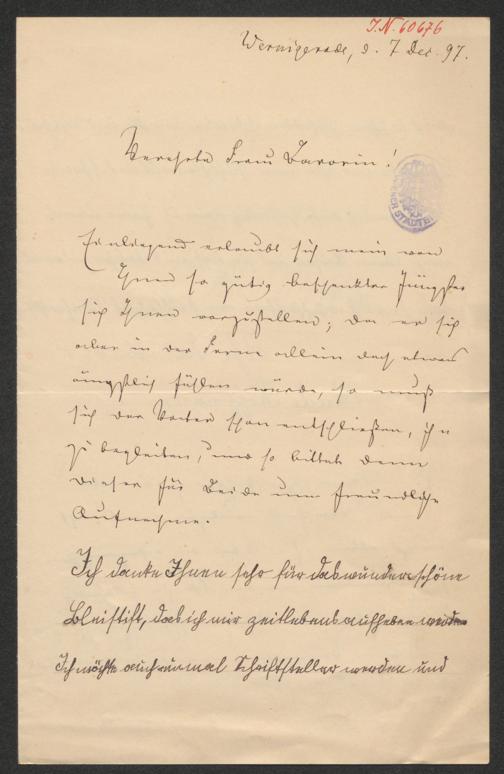 I.N. 60676
Wernigerode, d. 7 Dec. 97.
Verehrte Frau Baronin!
Einliegend erlaubt sich mein von
Ihnen so gütig beschenkter Jüngster
sich Ihnen vorzustellen; da er sich
aber in der Ferne allein doch etwas
ängstlich fühlen würde, so muß
sich der Vater schon entschließen, ihn
zu begleiten, und so bittet denn
dieser für Beide um freundliche
Aufnahme.
Ich danke Ihnen sehr für das wunderschöne
Bleistift, das ich mir zeitlebens aufheben werde
Ich möchte auch einmal Schriftsteller werden und